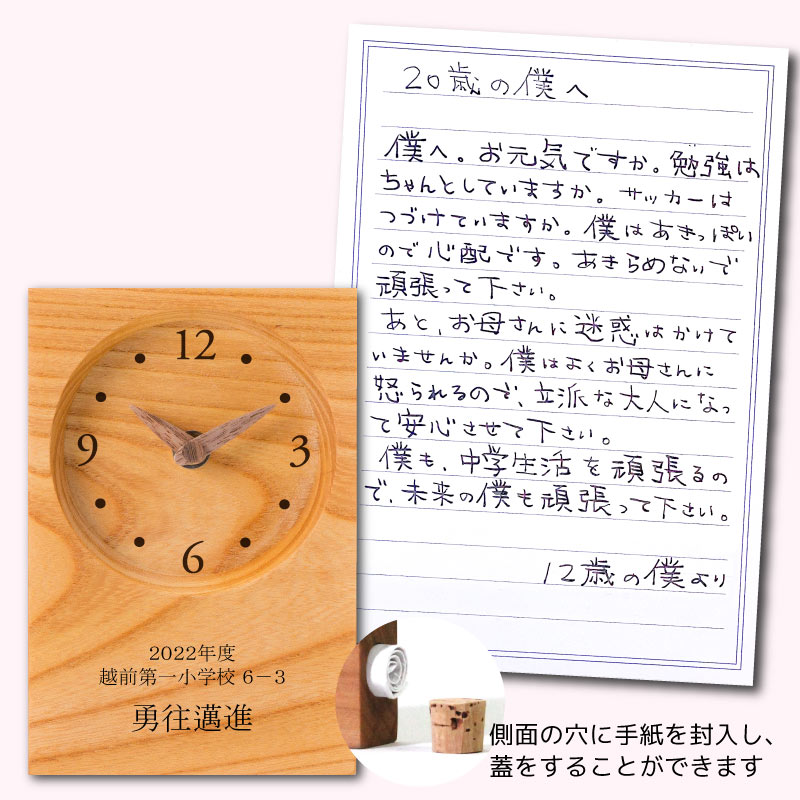 20歳の僕へ
僕へ。お元気ですか。勉強は
ちゃんとしていますか。サッカーは
つづけていますか。僕はあきっぽい
ので心配です。あきらめないで
頑張って下さい。
あと、お母さんに迷惑はかけて
いませんか。僕はよくお母さんに
怒られるので、立派な大人になっ
て安心させて下さい。
僕も、中学生活を頑張るの
で、未来の僕も頑張って下さい。
12歳の僕より
12
9 3
6
2022年度
越前第一小学校 6−3
勇往邁進
側面の穴に手紙を封入し、
蓋をすることができます